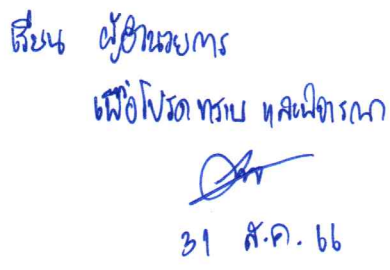 เรียน ผู้อำนวยการ
เพื่อโปรดทราบ และพิจารณา
31 ส.ค. 66